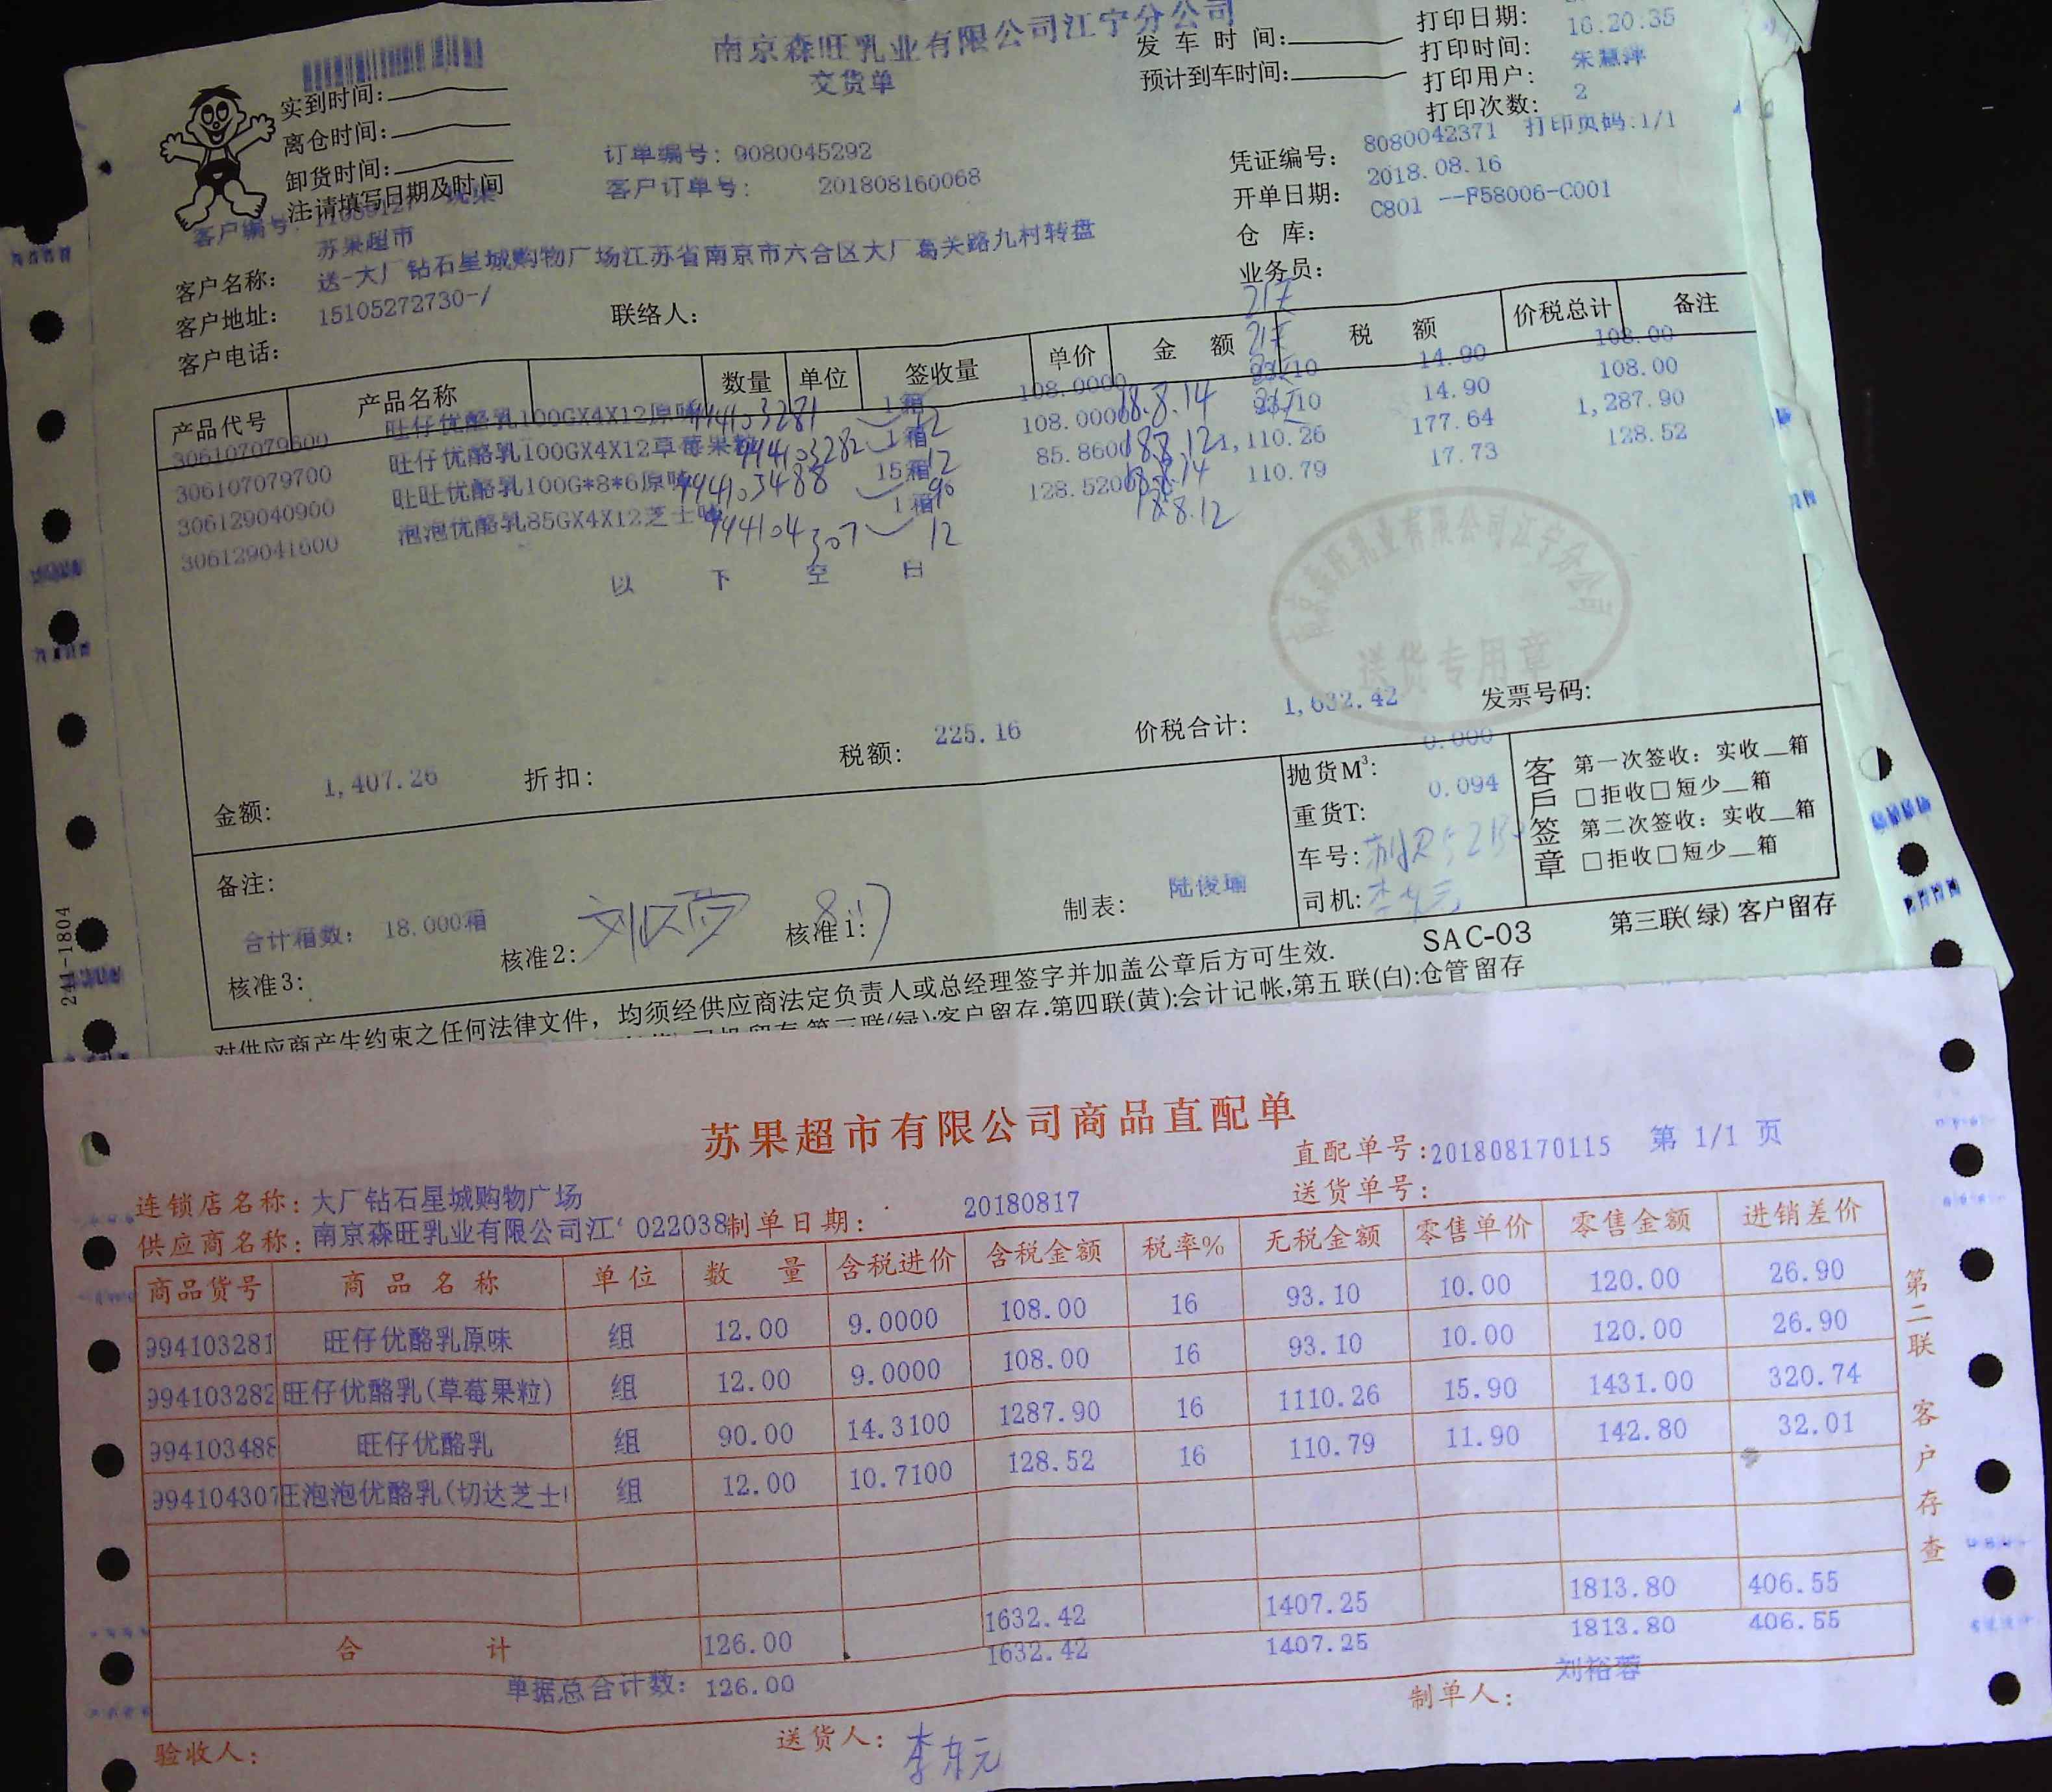 南京森旺乳业有限公司江宁分公司
交货单
实到时间:
离仓时间:
卸货时间:
注:请填写日期及时间
发车时间:
预计到车时间:
打印日期:
打印时间: 16:20:35
打印用户: 朱慧萍
打印次数: 2
订单编号: 9080045292
客户订单号: 201808160068
凭证编号: 8080042371 打印页码:1/1
开单日期: 2018.08.16
仓库: C801 --F58006-C001
业务员:
客户编号:
客户名称: 苏果超市
客户地址: 送-大厂钻石星城购物广场江苏省南京市六合区大厂葛关路九村转盘
客户电话: 15105272730-/
联络人:
产品代号 产品名称 数量 单位 签收量 单价 金额 税额 价税总计 备注
306107079600 旺仔优酪乳100GX4X12原味 994103281 1箱 12 108.0000 18.8.14 14.90 108.00
306107079700 旺仔优酪乳100GX4X12草莓果粒 994103282 1箱 12 108.0000 18.8.12 14.90 108.00
306129040900 旺旺优酪乳100G*8*6原味 994103488 15箱 90 85.8600 18.8.14 1,110.26 177.64 1,287.90
306129041600 泡泡优酪乳85GX4X12芝士味 994104307 1箱 12 128.5200 18.8.12 110.79 17.73 128.52
以下空白
南京森旺乳业有限公司江宁分公司
送货专用章
金额: 1,407.26 折扣: 税额: 225.16 价税合计: 1,632.42 发票号码:
备注:
合计箱数: 18.000箱
核准3: 核准2: 核准1: 制表: 陆俊瑜
抛货M³: 0.000
重货T: 0.094
车号:
司机: 李东元
客戶签章
第一次签收: 实收__箱
□拒收□短少__箱
第二次签收: 实收__箱
□拒收□短少__箱
SAC-03 第三联(绿)客户留存
对供应商产生约束之任何法律文件, 均须经供应商法定负责人或总经理签字并加盖公章后方可生效.
第三联(绿):客户留存.第四联(黄):会计记帐,第五联(白):仓管留存
241-1804
苏果超市有限公司商品直配单
直配单号:201808170115 第 1/1 页
送货单号:
连锁店名称: 大厂钻石星城购物广场
供应商名称: 南京森旺乳业有限公司江 022038 制单日期: 20180817
商品货号 商品名称 单位 数量 含税进价 含税金额 税率% 无税金额 零售单价 零售金额 进销差价
994103281 旺仔优酪乳原味 组 12.00 9.0000 108.00 16 93.10 10.00 120.00 26.90
994103282 旺仔优酪乳(草莓果粒) 组 12.00 9.0000 108.00 16 93.10 10.00 120.00 26.90
994103488 旺仔优酪乳 组 90.00 14.3100 1287.90 16 1110.26 15.90 1431.00 320.74
994104307 旺泡泡优酪乳(切达芝士 组 12.00 10.7100 128.52 16 110.79 11.90 142.80 32.01
合计 126.00 1632.42 1407.25 1813.80 406.55
单据总合计数: 126.00 1632.42 1407.25 1813.80 406.55
验收人: 送货人: 李东元 制单人: 刘裕蓉
第二联 客户存查